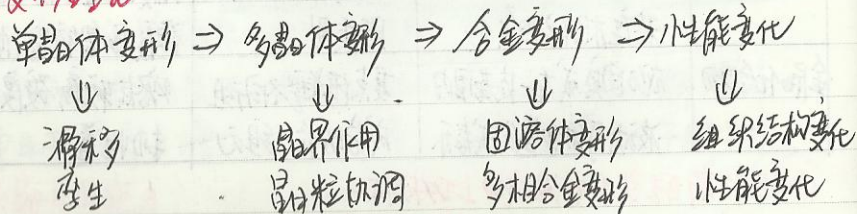 单晶体变形 ⇒ 多晶体变形 ⇒ 合金变形 ⇒ 性能变化
⇓ ⇓ ⇓ ⇓
滑移 晶界作用 固溶体变形 组织结构变化
孪生 晶粒协调 多相合金变形 性能变化